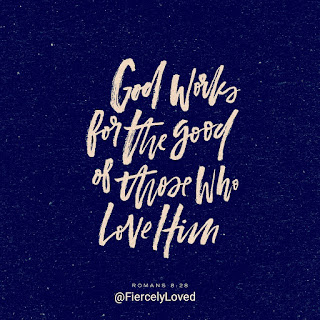 God Works
for the good
of those Who
Love Him.
ROMANS 8:28
@FiercelyLoved